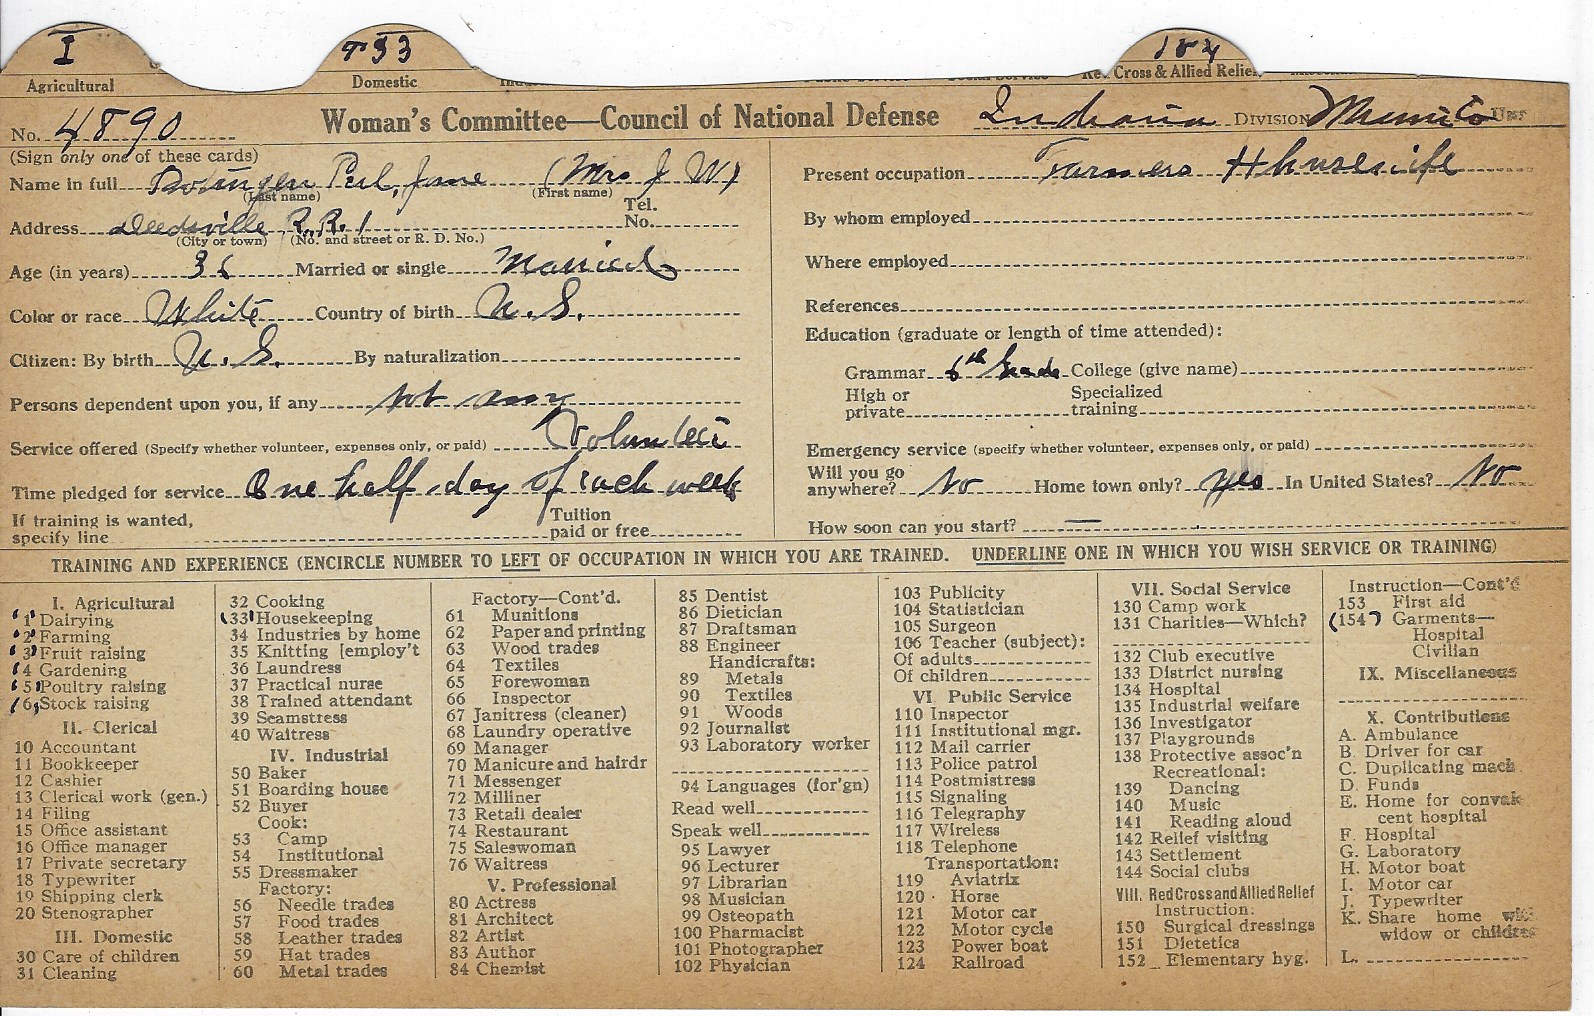 I 33 184
Agricultural Domestic Red Cross & Allied Relief
No. 4890 Woman's Committee—Council of National Defense Indiana DIVISION Miami Co
(Sign only one of these cards)
Name in full Jane (Mrs J W)
(Last name) (First name)
Address Deedsville R.R. 1 Tel. No.
(City or town) (No. and street or R. D. No.)
Age (in years) Married or single Married
Color or race White Country of birth U. S.
Citizen: By birth U. S. By naturalization
Persons dependent upon you, if any not any
Service offered (Specify whether volunteer, expenses only, or paid) Volunteer
Time pledged for service One half day of each week
If training is wanted, specify line Tuition paid or free
Present occupation Farmers Housewife
By whom employed
Where employed
References
Education (graduate or length of time attended):
Grammar 6th Grade College (give name)
High or private Specialized training
Emergency service (specify whether volunteer, expenses only, or paid)
Will you go anywhere? No Home town only? yes In United States? No
How soon can you start? —
TRAINING AND EXPERIENCE (ENCIRCLE NUMBER TO LEFT OF OCCUPATION IN WHICH YOU ARE TRAINED. UNDERLINE ONE IN WHICH YOU WISH SERVICE OR TRAINING)
I. Agricultural
1 Dairying
2 Farming
3 Fruit raising
4 Gardening
5 Poultry raising
6 Stock raising
II. Clerical
10 Accountant
11 Bookkeeper
12 Cashier
13 Clerical work (gen.)
14 Filing
15 Office assistant
16 Office manager
17 Private secretary
18 Typewriter
19 Shipping clerk
20 Stenographer
III. Domestic
30 Care of children
31 Cleaning
32 Cooking
(33) Housekeeping
34 Industries by home
35 Knitting [employ't
36 Laundress
37 Practical nurse
38 Trained attendant
39 Seamstress
40 Waitress
IV. Industrial
50 Baker
51 Boarding house
52 Buyer
Cook:
53 Camp
54 Institutional
55 Dressmaker
Factory:
56 Needle trades
57 Food trades
58 Leather trades
59 Hat trades
60 Metal trades
Factory—Cont'd.
61 Munitions
62 Paper and printing
63 Wood trades
64 Textiles
65 Forewoman
66 Inspector
67 Janitress (cleaner)
68 Laundry operative
69 Manager
70 Manicure and hairdr
71 Messenger
72 Milliner
73 Retail dealer
74 Restaurant
75 Saleswoman
76 Waitress
V. Professional
80 Actress
81 Architect
82 Artist
83 Author
84 Chemist
85 Dentist
86 Dietician
87 Draftsman
88 Engineer
Handicrafts:
89 Metals
90 Textiles
91 Woods
92 Journalist
93 Laboratory worker
94 Languages (for'gn)
Read well
Speak well
95 Lawyer
96 Lecturer
97 Librarian
98 Musician
99 Osteopath
100 Pharmacist
101 Photographer
102 Physician
103 Publicity
104 Statistician
105 Surgeon
106 Teacher (subject):
Of adults
Of children
VI. Public Service
110 Inspector
111 Institutional mgr.
112 Mail carrier
113 Police patrol
114 Postmistress
115 Signaling
116 Telegraphy
117 Wireless
118 Telephone
Transportation:
119 Aviatrix
120 Horse
121 Motor car
122 Motor cycle
123 Power boat
124 Railroad
VII. Social Service
130 Camp work
131 Charities—Which?
132 Club executive
133 District nursing
134 Hospital
135 Industrial welfare
136 Investigator
137 Playgrounds
138 Protective assoc'n
Recreational:
139 Dancing
140 Music
141 Reading aloud
142 Relief visiting
143 Settlement
144 Social clubs
VIII. Red Cross and Allied Relief
Instruction:
150 Surgical dressings
151 Dietetics
152 Elementary hyg.
Instruction—Cont'd
153 First aid
(154) Garments—
Hospital
Civilian
IX. Miscellaneous
X. Contributions
A. Ambulance
B. Driver for car
C. Duplicating mach.
D. Funds
E. Home for convales
cent hospital
F. Hospital
G. Laboratory
H. Motor boat
I. Motor car
J. Typewriter
K. Share home with
widow or children
L.